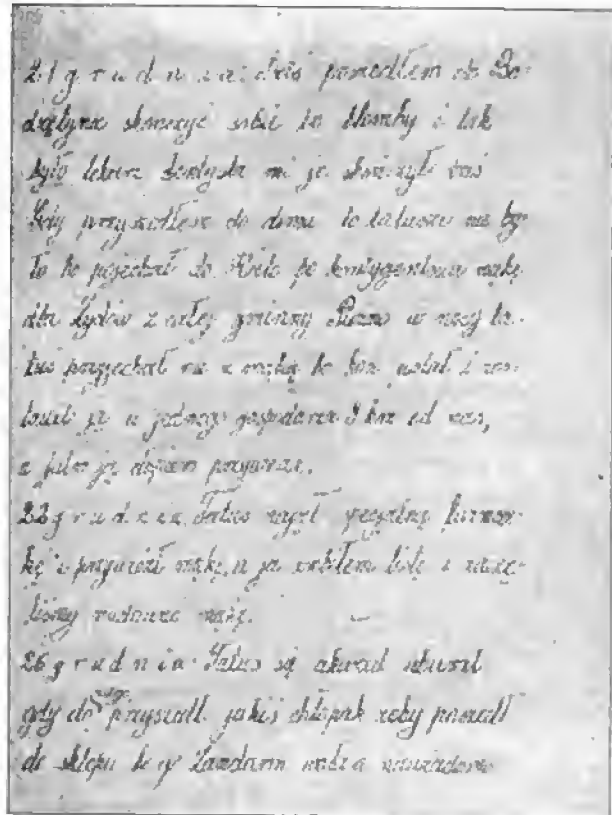 21 grudnia: dziś poszedłem do Bo-
dzętyna skończyć sobie te plomby i tak
było lekarz dentysta mi je skończył
Gdy przyszedłem do domu to tatusia nie by-
ło bo pojechał do Kielc po kontygentową mąkę
dla Żydów z całej gminy w nocy ta-
tuś przyjechał z mąką bo koń ustał i zos-
tawił ją u jednego gospodarza 3 km od nas,
a jutro ją dopiero przywiezie.
22 grudnia. Tatuś najął furman-
kę i przywiózł mąkę, a ja zrobiłem listę i zaczę-
liśmy rozdawać mąkę.
26 grudnia Tatuś się akurat ubierał
gdy do nas przyszedł jakiś chłopak żeby poszedł
do sklepu bo go żandarm woła